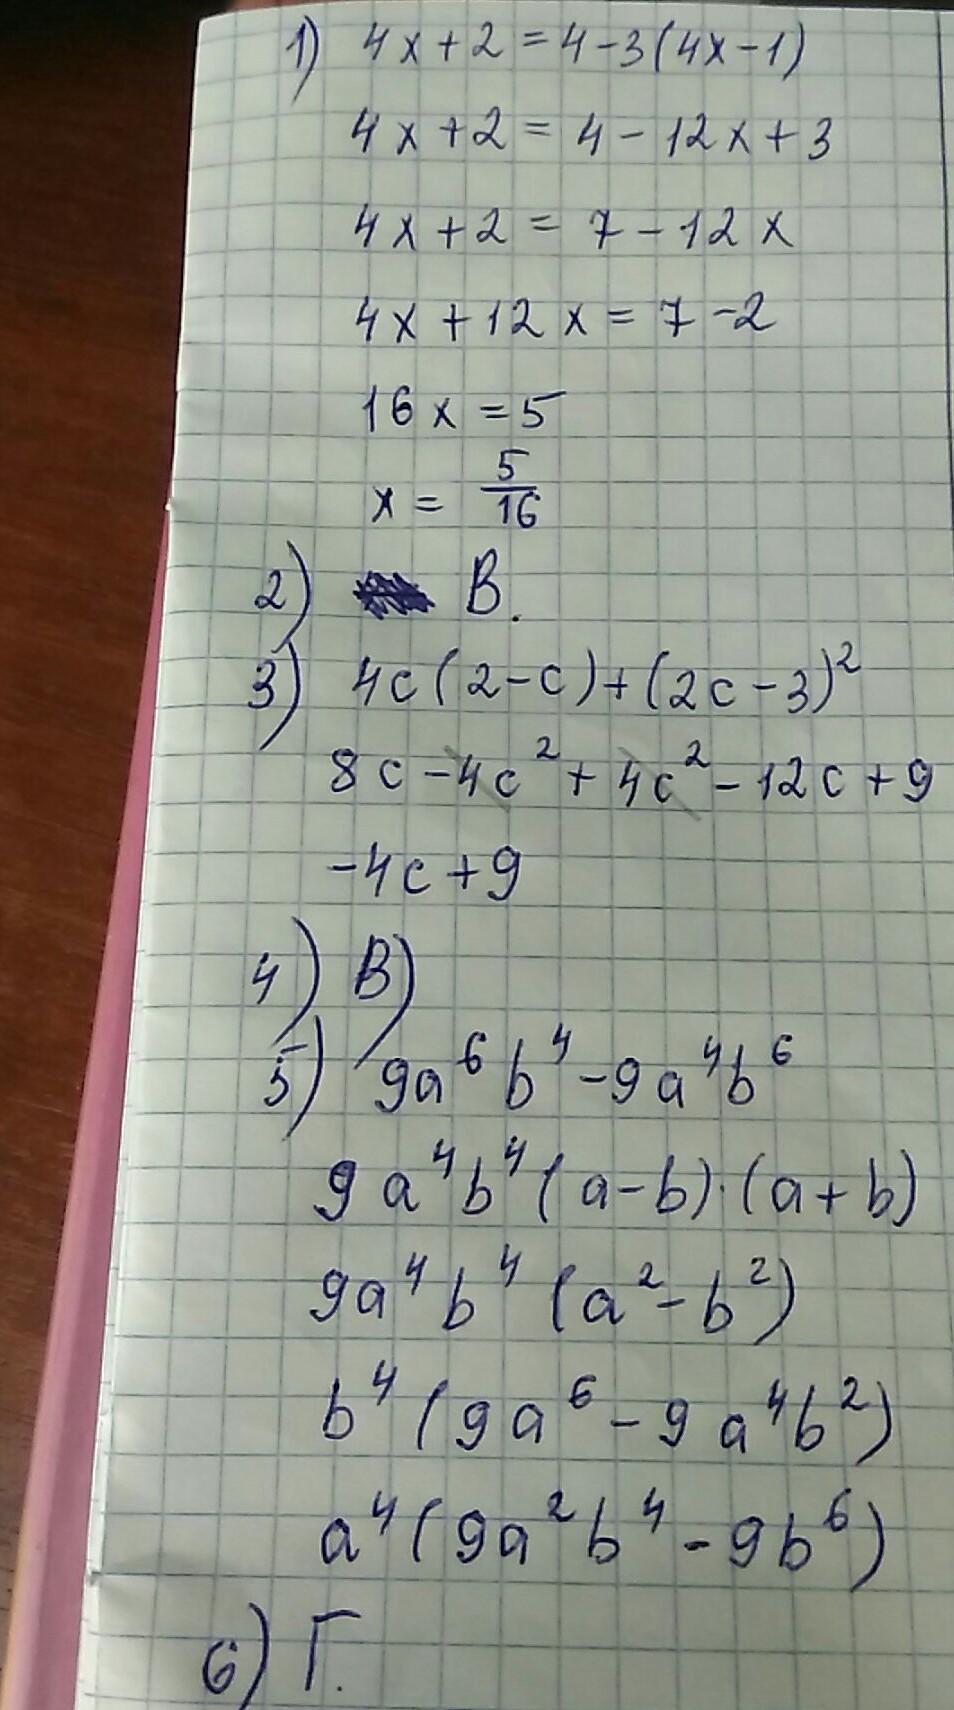 1) 4x+2=4-3(4x-1)
4x+2=4-12x+3
4x+2=7-12x
4x+12x=7-2
16x=5
x=5/16
2) В.
3) 4c(2-c)+(2c-3)²
8c-4c²+4c²-12c+9
-4c+9
4) В)
5) 9a⁶b⁴-9a⁴b⁶
9a⁴b⁴(a-b)·(a+b)
9a⁴b⁴(a²-b²)
b⁴(9a⁶-9a⁴b²)
a⁴(9a²b⁴-9b⁶)
6) Г.